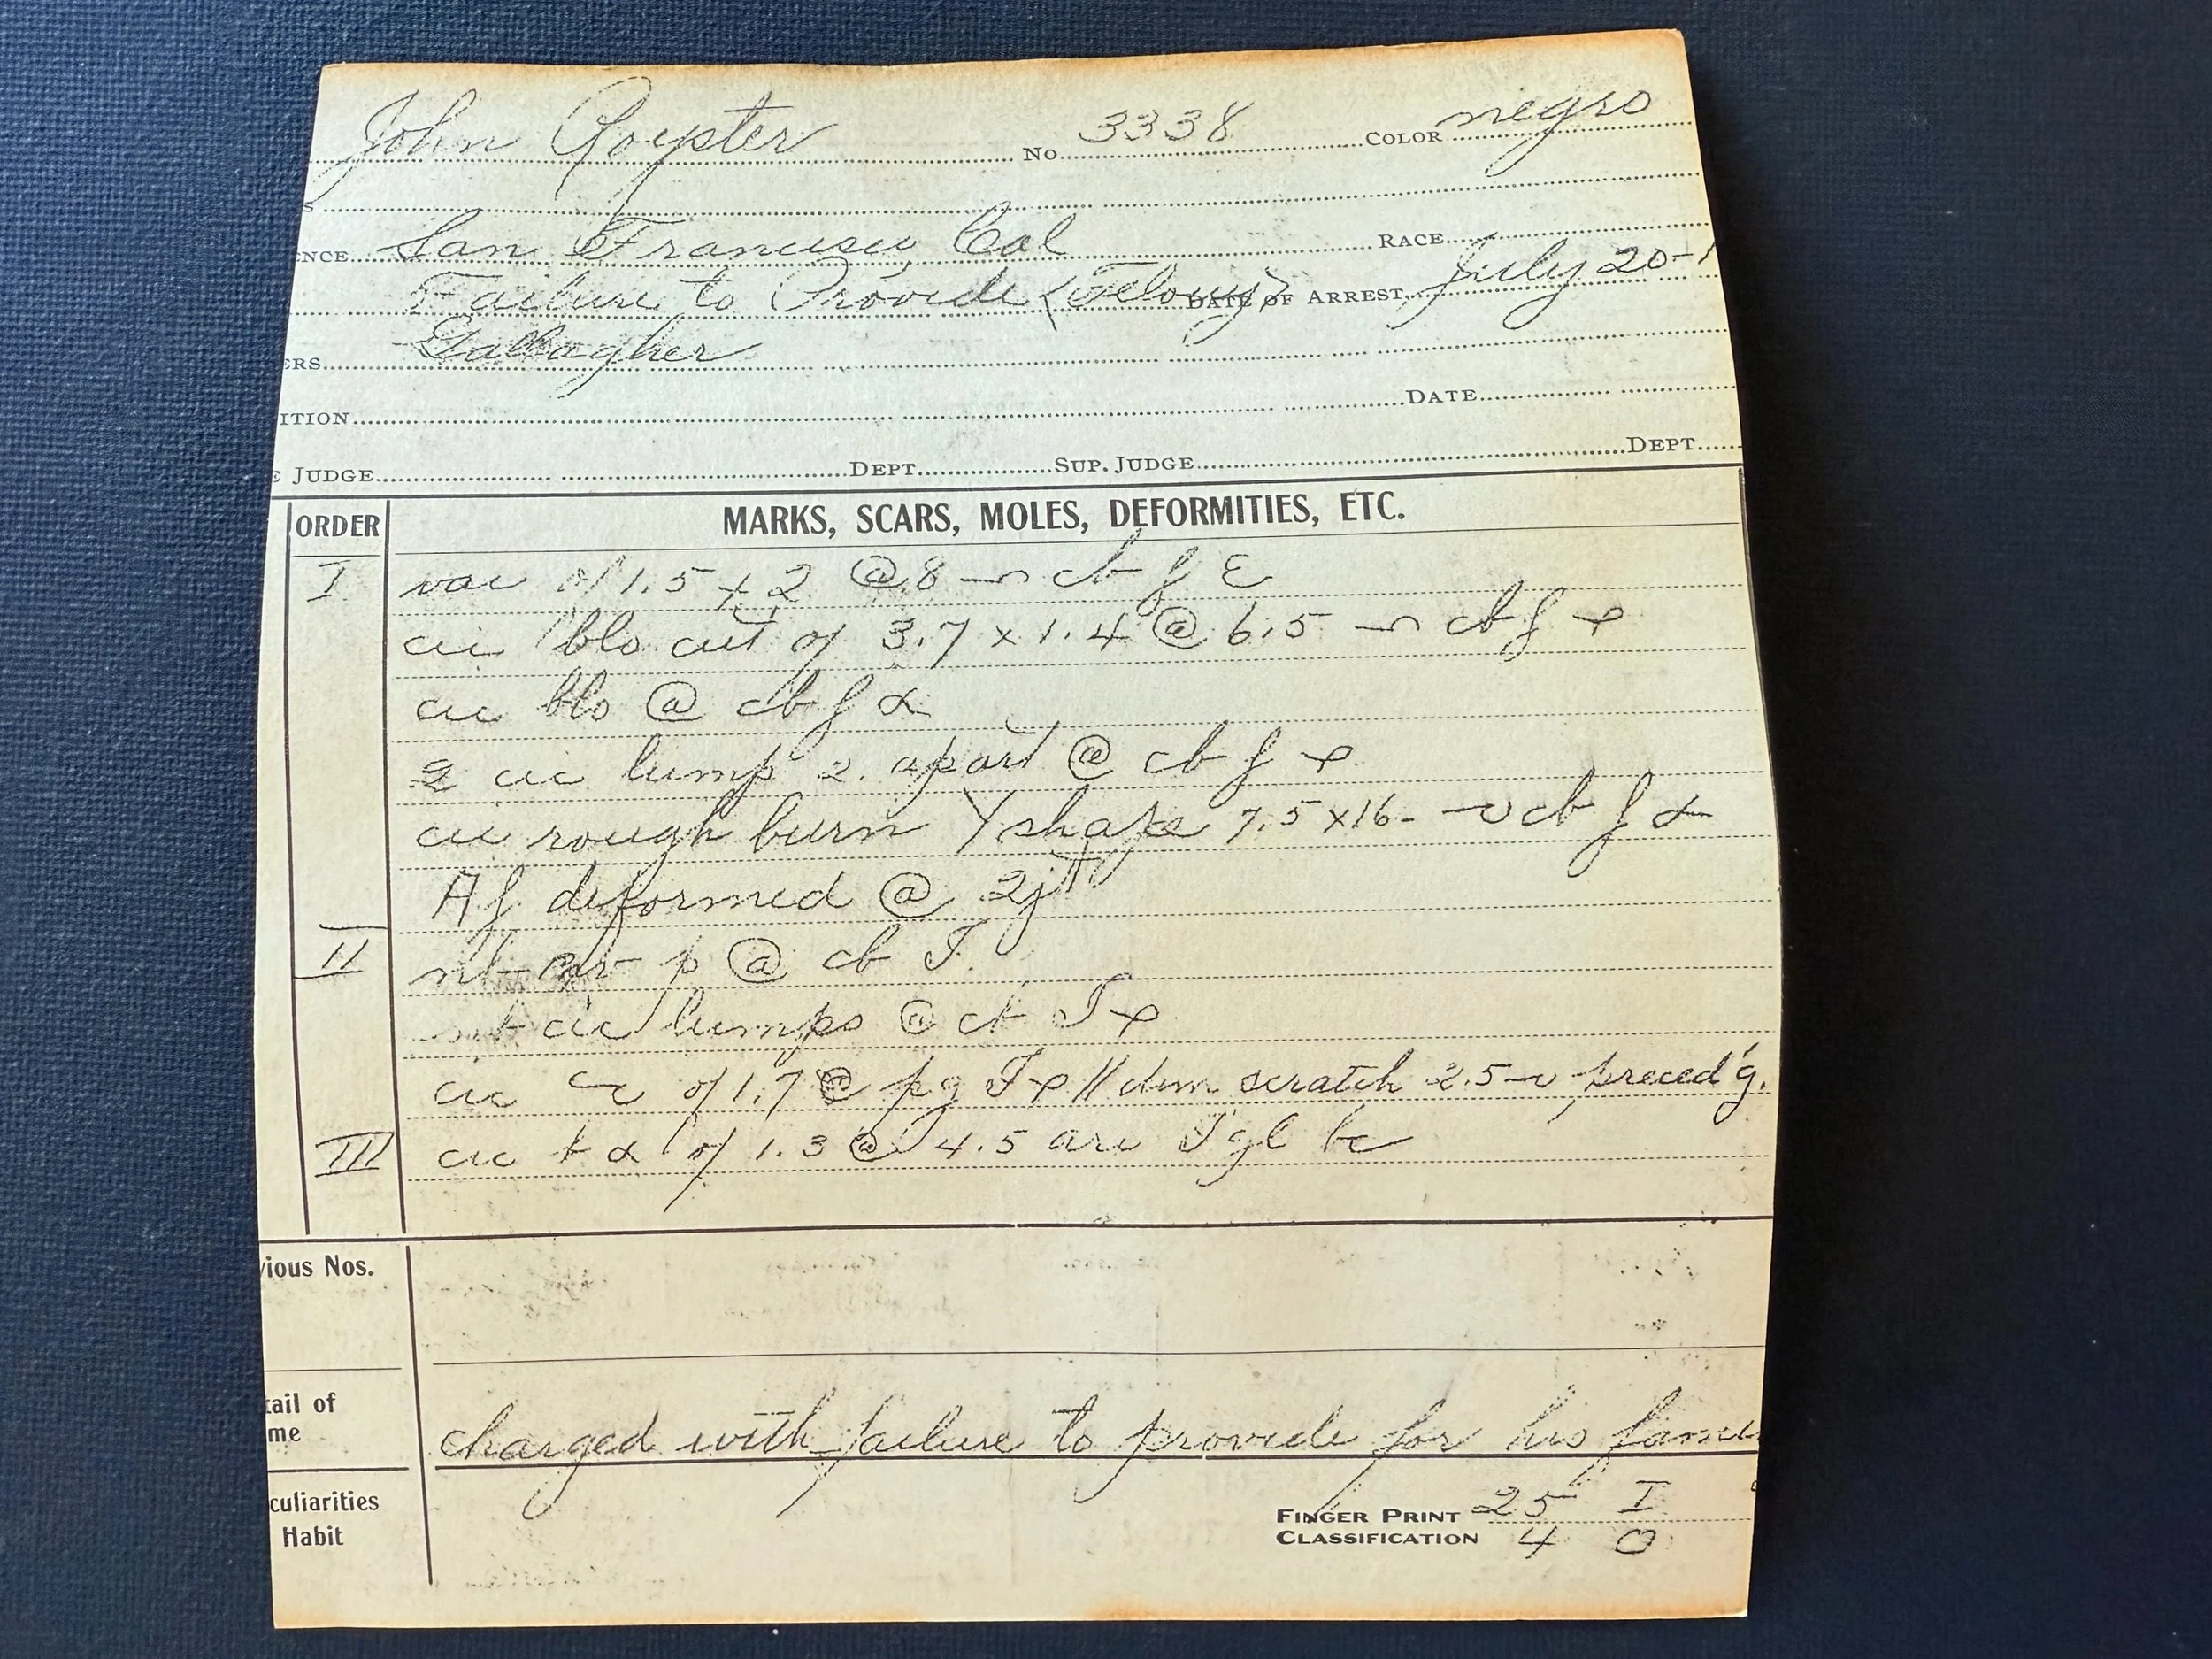 John Royster No. 3338 COLOR negro
S
NCE San Francisco, Cal RACE
Failure to Provide (Felony) DATE OF ARREST July 20-1
ERS Gallagher
ITION DATE
E JUDGE DEPT. SUP. JUDGE DEPT.
ORDER MARKS, SCARS, MOLES, DEFORMITIES, ETC.
I vac of 1.5 x 2 @ 8 cb f
cic blo cut of 3.7 x 1.4 @ 6.5 cb f
cic blo @ cb f
2 cic lump 2. apart @ cb f
cic rough burn Y shape 7.5 x 16- cb f
Af deformed @ 2jt
II p @ cb T.
cic lumps @ T
cic of 1.7 @ pg T // dim scratch 2.5 preced'g.
III cic of 1.3 @ 4.5
vious Nos.
tail of
me
charged with failure to provide for his fami
culiarities
Habit
FINGER PRINT 25 I
CLASSIFICATION 4 O